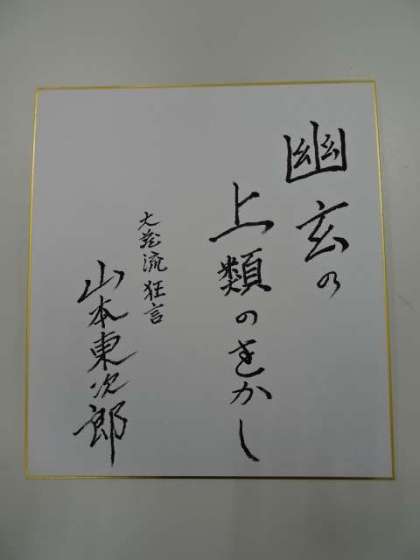 幽玄の
上類のをかし
大蔵流狂言
山本東次郎